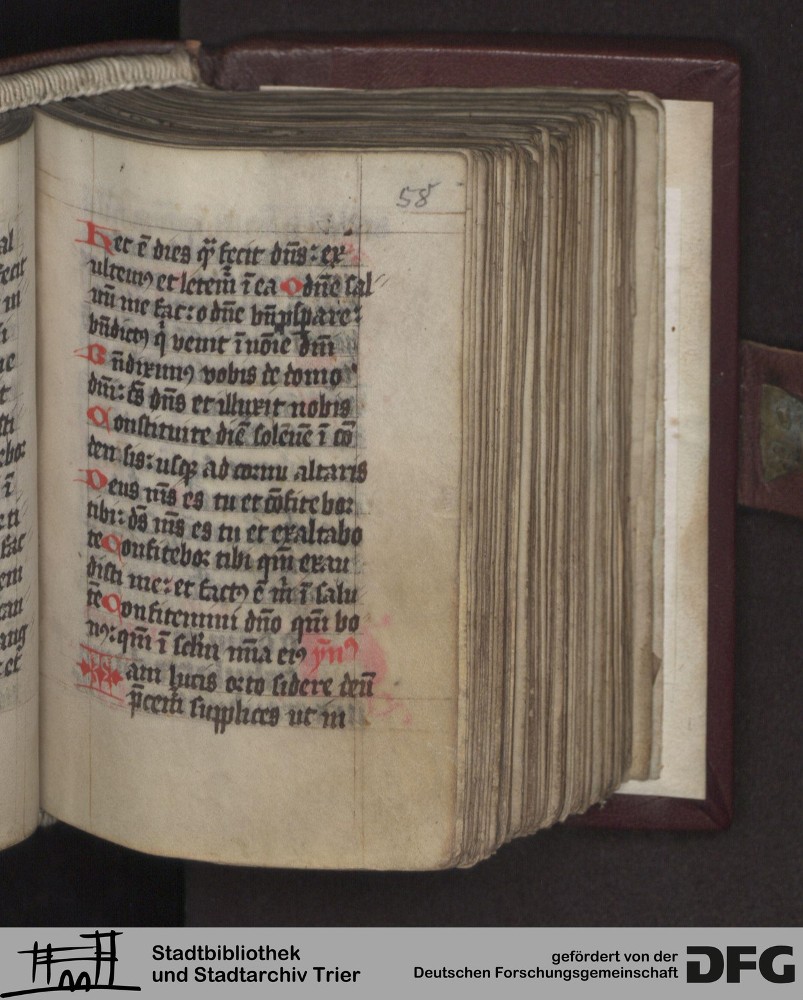 58
Hec ē dies q̄ fecit dn̄s: ex
ultem⁹ et letem̄ ī ea O dn̄e sal
uū me fac: o dn̄e bn̄ pspare:
bn̄dict⁹ q̇ venit ī nōīe dn̄i
Bn̄dixim⁹ vobis de domo
dn̄i: d̄s dn̄s et illuxit nobis
Constituite diē solēnē ī cō
densis: usq; ad cornu altaris
Deus m̄s es tu et cōfitebor
tibi: d̄s m̄s es tu et exaltabo
te Confitebor tibi qm̄ exau
disti me: et fact⁹ ē m̄ ī salu
tē Confitemini dn̄o qm̄ bo
n⁹: qm̄ ī sclm̄ mīa ei⁹ ẏn⁹
Iam lucis orto sidere deū
p̄cem̄ supplices ut in
al
fecit
in
ne
sti
ī
fac
em
et
Stadtbibliothek
und Stadtarchiv Trier
gefördert von der
Deutschen Forschungsgemeinschaft
DFG